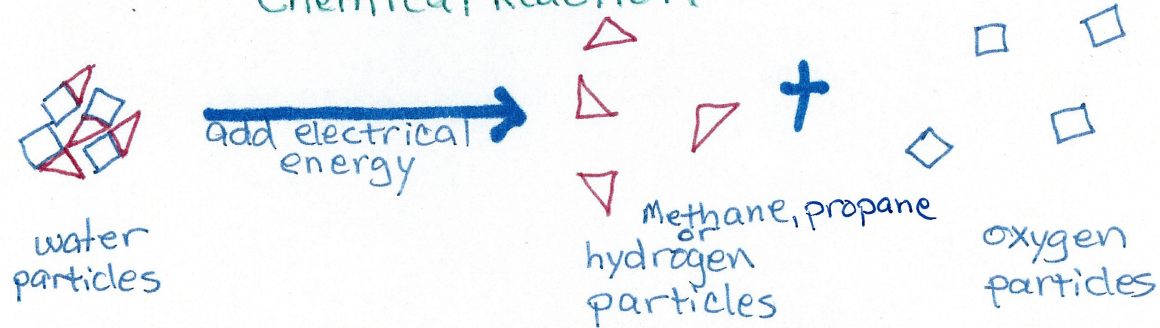 Chemical Reaction
add electrical
energy
water
particles
Methane, propane
or
hydrogen
particles
oxygen
particles